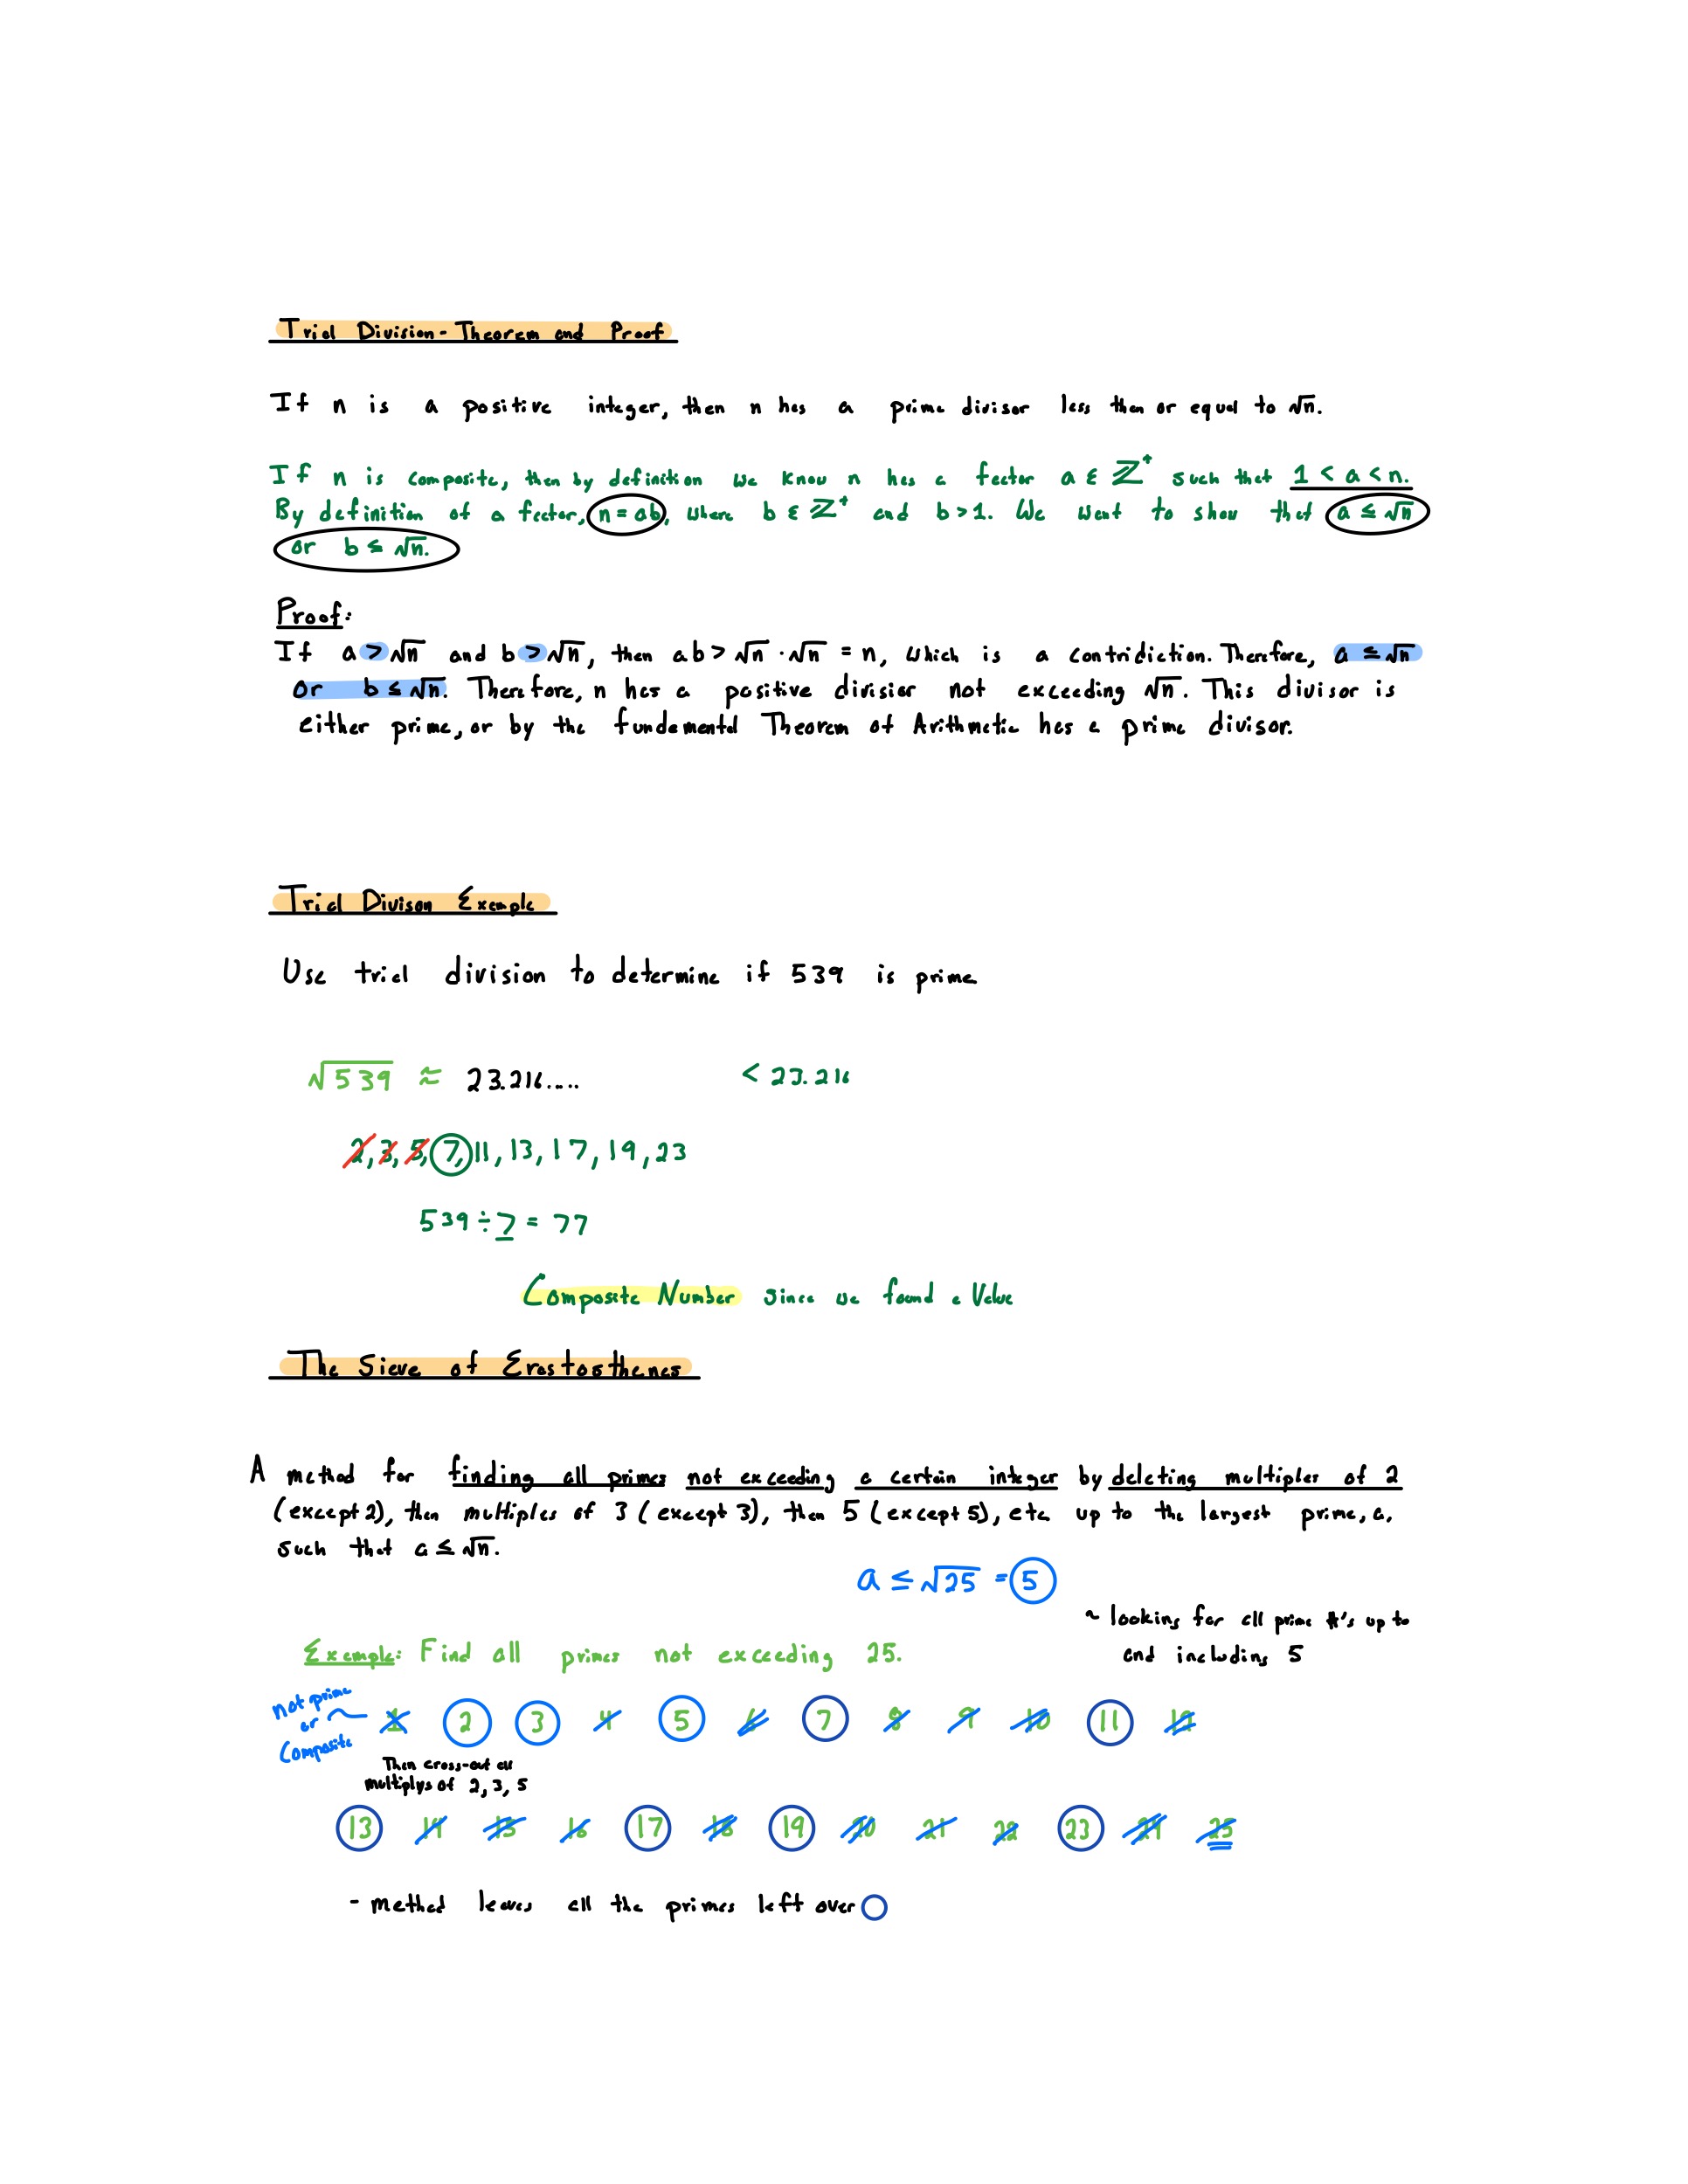 Trial Division - Theorem and Proof
If n is a positive integer, then n has a prime divisor less then or equal to √n.
If n is composite, then by definition we know n has a factor a ε ℤ⁺ such that 1 < a < n.
By definition of a factor, n = ab, where b ε ℤ⁺ and b > 1. We want to show that a ≤ √n
or b ≤ √n.
Proof:
If a > √n and b > √n, then ab > √n · √n = n, which is a contridiction. Therefore, a ≤ √n
or b ≤ √n. Therefore, n has a positive divisier not exceeding √n. This divisor is
either prime, or by the fundamental Theorem of Arithmetic has a prime divisor.
Trial Divison Example
Use trial division to determine if 539 is prime
√539 ≈ 23.216..... < 23.216
2, 3, 5, 7, 11, 13, 17, 19, 23
539 ÷ 7 = 77
Composite Number since we found a Value
The Sieve of Erastosthenes
A method for finding all primes not exceeding a certain integer by deleting multiples of 2
(except 2), then multiples of 3 (except 3), then 5 (except 5), etc. up to the largest prime, a,
such that a ≤ √n.
a ≤ √25 = 5
~ looking for all prime #'s up to
and including 5
Example: Find all primes not exceeding 25.
not prime
or
Composite
1 2 3 4 5 6 7 8 9 10 11 12
Then cross-out all
multiplys of 2, 3, 5
13 14 15 16 17 18 19 20 21 22 23 24 25
- method leaves all the primes left over